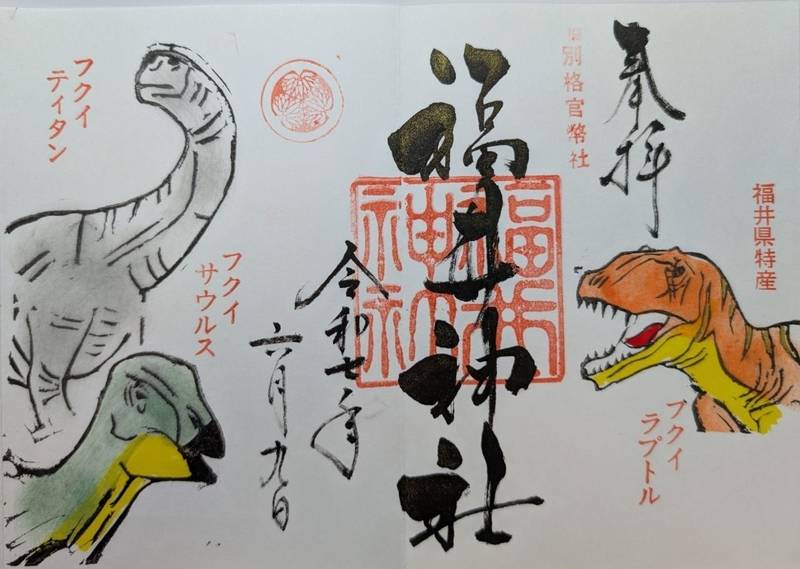 福井県特産
奉拝
旧別格官幣社
フクイ
ラプトル
福井神社
福井
神社
令和七年
六月九日
フクイ
サウルス
フクイ
ティタン